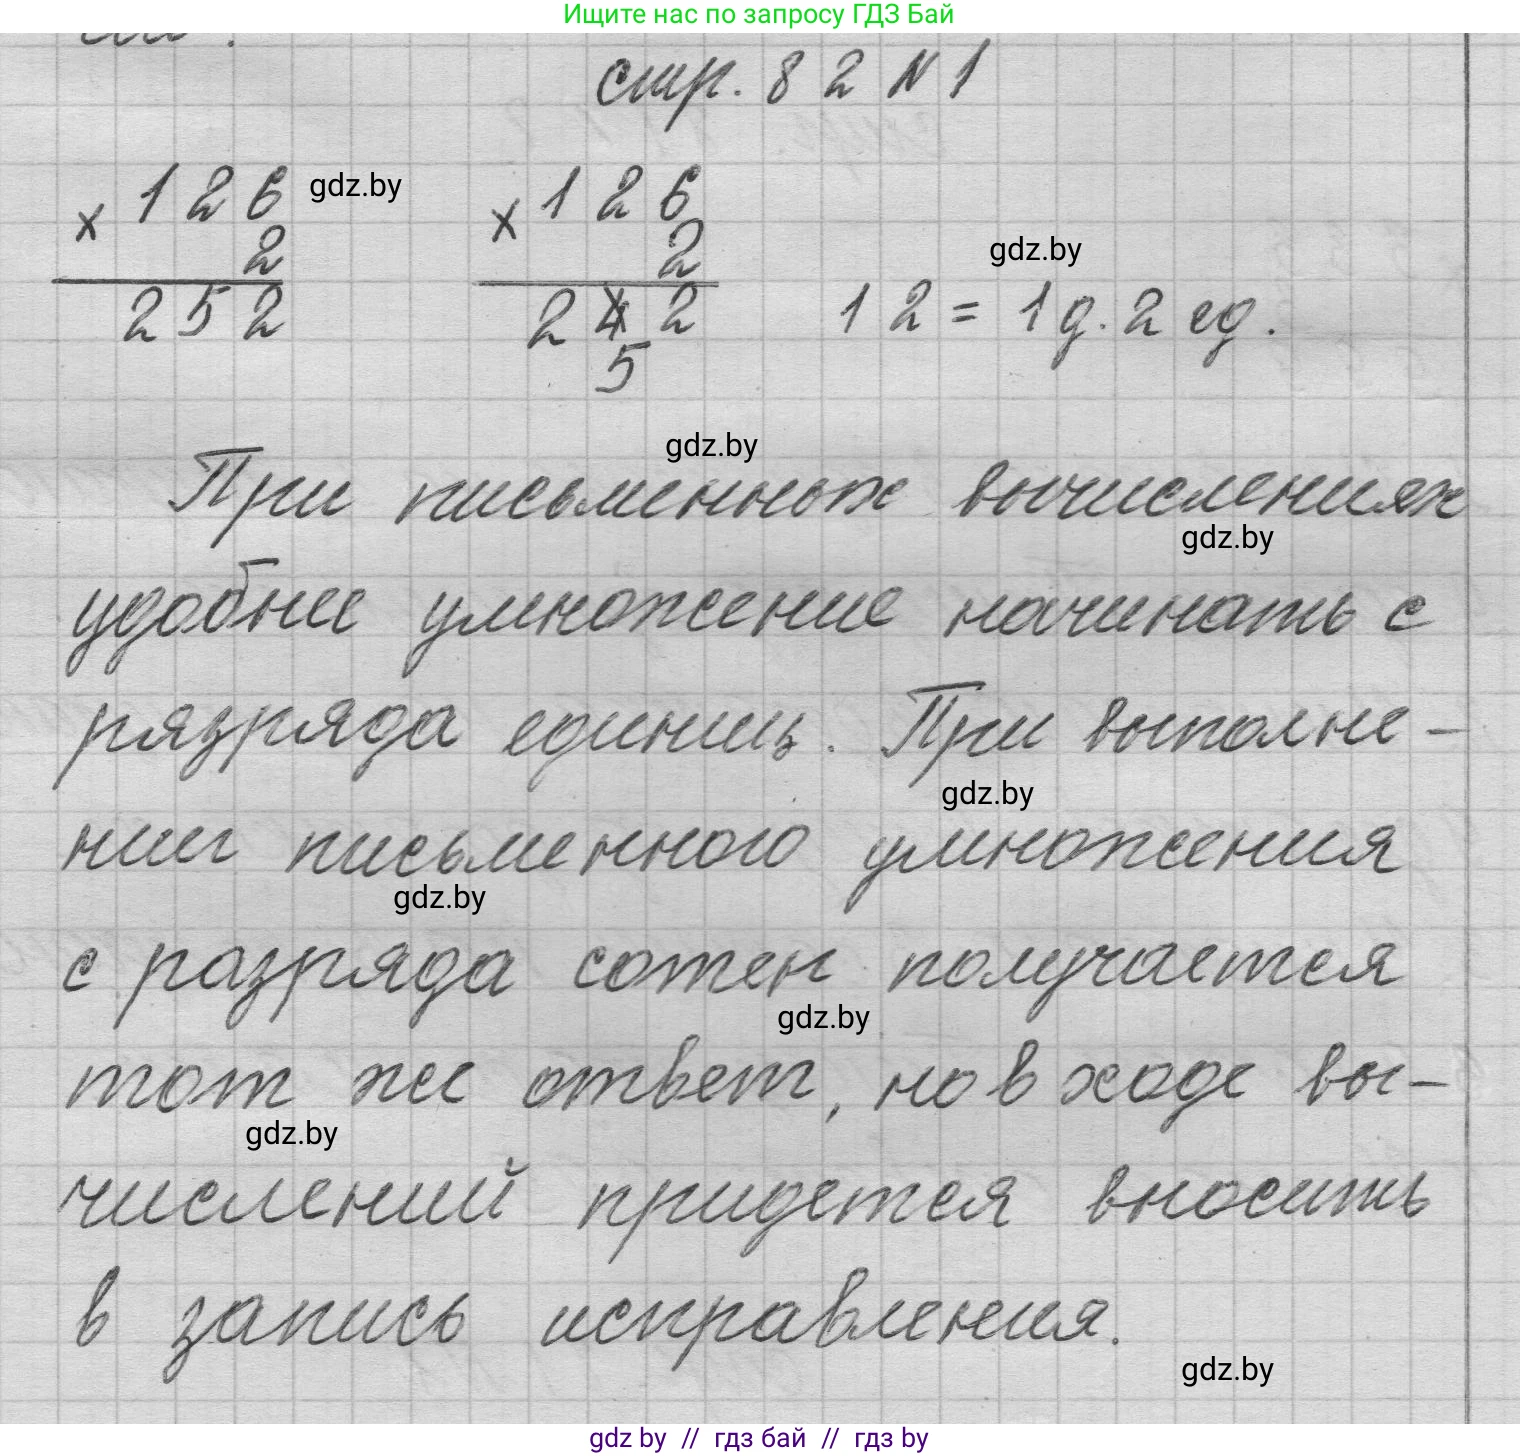 Ищите нас по запросу ГДЗ Бай
стр. 82 N 1
126 gdz.by 126
х 2 х 2 gdz.by
252 242 12 = 1 д. 2 ед.
5
gdz.by
При письменных вычислениях
gdz.by
удобнее умножение начинать с
рязряда единиц. При выполне-
gdz.by
нии письменного умножения
gdz.by
с разряда сотен получается
gdz.by
тот же ответ, но в ходе вы-
gdz.by
числений придется вносить
в запись исправления.
gdz.by
gdz by // гдз бай // гдз by